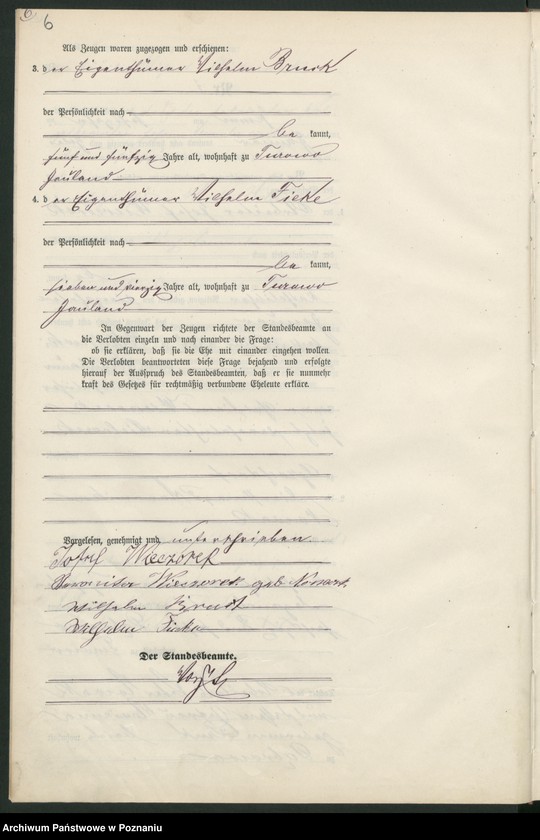 6
6
Als Zeugen waren zugezogen und erschienen:
3. der Eigenthümer Wilhelm
der Persönlichkeit nach
be kannt,
fünf und fünfzig Jahre alt, wohnhaft zu Turowo
Hauland
4. der Eigenthümer Wilhelm Ficke
der Persönlichkeit nach
be kannt,
sieben und vierzig Jahre alt, wohnhaft zu Turowo
Hauland
In Gegenwart der Zeugen richtete der Standesbeamte an
die Verlobten einzeln und nach einander die Frage:
ob sie erklären, daß sie die Ehe mit einander eingehen wollen.
Die Verlobten beantworteten diese Frage bejahend und erfolgte
hierauf der Ausspruch des Standesbeamten, daß er sie nunmehr
kraft des Gesetzes für rechtmäßig verbundene Eheleute erkläre.
Vorgelesen, genehmigt und unterschrieben
Josef Wieczorek
Wieczorek geb.
Wilhelm
Wilhelm Ficke
Der Standesbeamte.
Archiwum Państwowe w Poznaniu